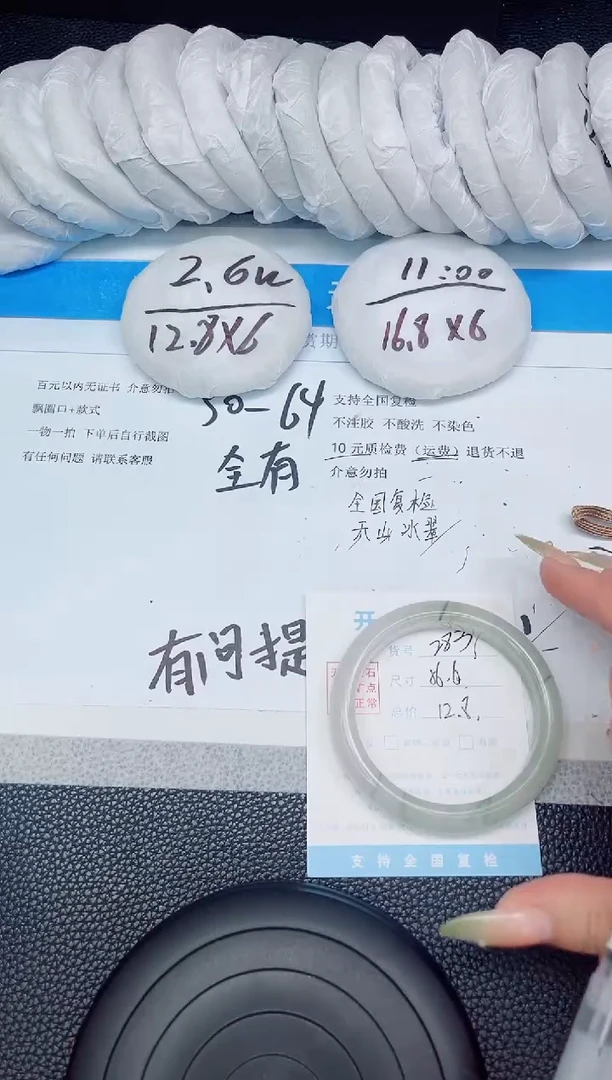 2.6u
12.8X6
11:00
16.8X6
百元以内无证书 介意勿拍
飘圈口+款式
一物一拍 下单后自行截图
有任何问题 请联系客服
50-64
全有
支持全国复检
不注胶 不酸洗 不染色
10元质检费(运费)退货不退
介意勿拍
全国复检
天山冰翠
有问提
开
货号
尺寸 56.6
总价 12.8
石
点
正常
支持全国复检